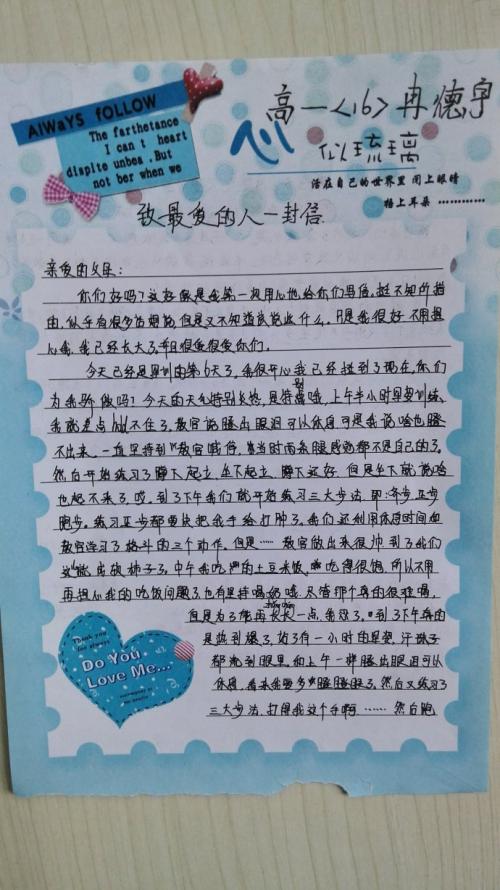 AlWaYS fOLLOW
The farthetance
I can t heart
dispite unbea .But
not ber when we
高一<16> 冉德宇
心 似琉璃
活在自己的世界里 闭上眼睛
捂上耳朵 …………
致最爱的人一封信
亲爱的父母：
你们好吗？这好像是我第一次用心地给你们写信。挺不知所措
的，似乎有很多话想说，但是又不知道该说些什么。只是我很好 不用担
心我，我已经长大了，而且很爱很爱你们。
今天已经是军训的第6天了，我很开心我已经挺到了现在，你们
为我骄傲吗？今天的天气特别炎热，是特别热哦，上午半小时军姿训练，
我就差点hold不住了，教官说腿出眼泪可以休息可是我说啥也腿
不出来，一直坚持到教官喊停，当时两条腿感觉都不是自己的了。
然后开始练习了蹲下起立，坐下起立，蹲下这好，但是坐下就说啥
也起不来了，哎，到了下午我们就开始练习三大步法，即：齐步正步
跑步。练习正步都要快把我手给打肿了，我们还利用休息时间向
教官学习了格斗的三个动作。但是…… 教官做出来很帅 到了我们
这就成 柿子了，中午我吃的土豆米饭，吃得很饱，所以不用
再担心我的吃饭问题了，也有坚持喝奶哦，尽管那个真的很难喝，
但是为了能再长长一点，我忍了。到了下午真的
是热到爆了，站了有一小时的军姿，汗珠子
都流到眼里，和上午一样腿出眼泪可以
休息，看来我要多腿腿腿了。然后又练习了
三大步法，打得我这个手啊 …… 然后跑
Thank you
for always
Do You
Love Me...